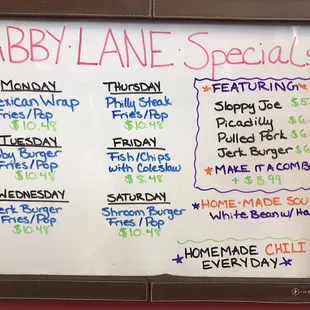 ABBY·LANE·Specials
MONDAY
Mexican Wrap
Fries/Pop
$10.48
TUESDAY
Abby Burger
Fries/Pop
$10.48
WEDNESDAY
Jerk Burger
Fries/Pop
$10.48
THURSDAY
Philly Steak
Fries/Pop
$10.48
FRIDAY
Fish/Chips
with Coleslaw
$8.48
SATURDAY
Shroom Burger
Fries/Pop
$10.48
*FEATURING*
Sloppy Joe $5
Picadilly $6
Pulled Pork $6
Jerk Burger $6
*MAKE IT A COMBO
+ $3.99
*HOME-MADE SOU
White Bean w/ Ha
*HOMEMADE CHILI
EVERYDAY*